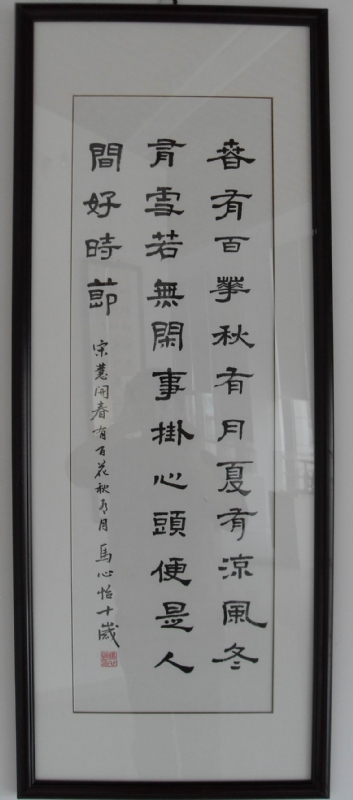 春有百華秋有月夏有涼風冬
有雪若無閑事掛心頭便是人
間好時節
宋慧開春有百花秋有月 馬心怡十歲